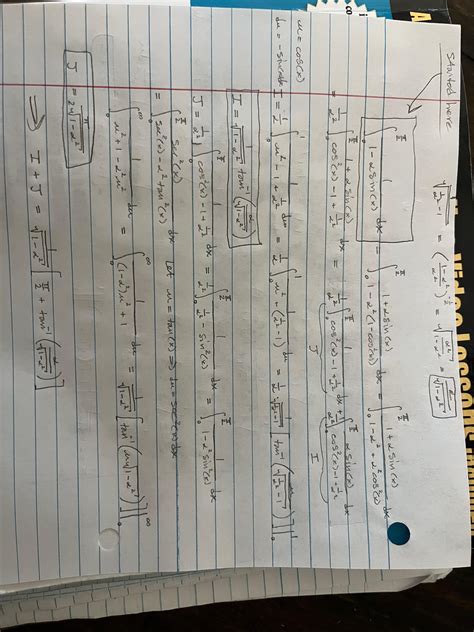 Started here
$\sqrt{\frac{1}{\alpha^2}-1} = \left(\frac{1-\alpha^2}{\alpha^2}\right)^{\frac{1}{2}} = \sqrt{\frac{\alpha^2}{1-\alpha^2}} = \frac{\alpha}{\sqrt{1-\alpha^2}}$
$\int_0^{\frac{\pi}{2}} \frac{1}{1-\alpha\sin(x)}dx = \int_0^{\frac{\pi}{2}} \frac{1+\alpha\sin(x)}{1-\alpha^2(1-\cos^2(x))}dx = \int_0^{\frac{\pi}{2}} \frac{1+\alpha\sin(x)}{1-\alpha^2+\alpha^2\cos^2(x)}dx$
$= \frac{1}{\alpha^2}\int_0^{\frac{\pi}{2}} \frac{1+\alpha\sin(x)}{\cos^2(x)-1+\frac{1}{\alpha^2}}dx = \frac{1}{\alpha^2}\int_0^{\frac{\pi}{2}} \frac{1}{\cos^2(x)-1+\frac{1}{\alpha^2}}dx + \frac{1}{\alpha^2}\int_0^{\frac{\pi}{2}} \frac{\alpha\sin(x)}{\cos^2(x)-1+\frac{1}{\alpha^2}}dx$
J I
u = cos(x)
du = -sin(x)dx
$I = \frac{1}{\alpha}\int_0^1 \frac{1}{u^2-1+\frac{1}{\alpha^2}}du = \frac{1}{\alpha}\int_0^1 \frac{1}{u^2+(\frac{1}{\alpha^2}-1)}du = \frac{1}{\alpha}\frac{1}{\sqrt{\frac{1}{\alpha^2}-1}}\left[\tan^{-1}\left(\frac{u}{\sqrt{\frac{1}{\alpha^2}-1}}\right)\right]_0^1$
$I = \frac{1}{\sqrt{1-\alpha^2}}\tan^{-1}\left(\frac{\alpha}{\sqrt{1-\alpha^2}}\right)$
$J = \frac{1}{\alpha^2}\int_0^{\frac{\pi}{2}} \frac{1}{\cos^2(x)-1+\frac{1}{\alpha^2}}dx = \frac{1}{\alpha^2}\int_0^{\frac{\pi}{2}} \frac{1}{\frac{1}{\alpha^2}-\sin^2(x)}dx = \int_0^{\frac{\pi}{2}} \frac{1}{1-\alpha^2\sin^2(x)}dx$
$= \int_0^{\frac{\pi}{2}} \frac{\sec^2(x)}{\sec^2(x)-\alpha^2\tan^2(x)}dx$ Let u = tan(x) ⇒ du = sec²(x)dx
$= \int_0^\infty \frac{1}{u^2+1-\alpha^2u^2}du = \int_0^\infty \frac{1}{(1-\alpha^2)u^2+1}du = \frac{1}{\sqrt{1-\alpha^2}}\left[\tan^{-1}(u\sqrt{1-\alpha^2})\right]_0^\infty$
$J = \frac{\pi}{2\sqrt{1-\alpha^2}}$
$\Rightarrow I + J = \frac{1}{\sqrt{1-\alpha^2}}\left[\frac{\pi}{2}+\tan^{-1}\left(\frac{\alpha}{\sqrt{1-\alpha^2}}\right)\right]$
Video Lesson